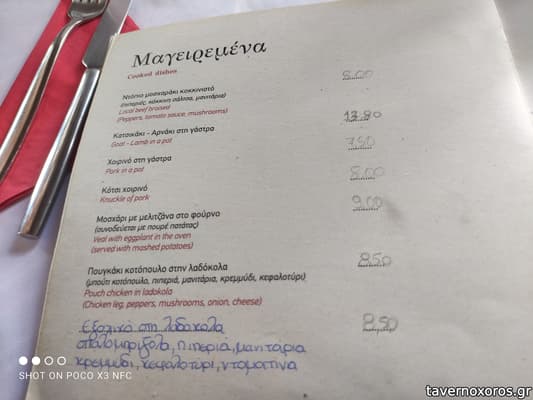 Μαγειρεμένα
Cooked dishes
8.00
Ντόπιο μοσχαράκι κοκκινιστό
(πιπεριές, κόκκινη σάλτσα, μανιτάρια)
Local beef braised
(Peppers, tomato sauce, mushrooms)
Κατσικάκι - Αρνάκι στη γάστρα
Goat - Lamb in a pot
7.50
Χοιρινό στη γάστρα
Pork in a pot
8.00
Κότσι χοιρινό
Knuckle of pork
9.00
Μοσχάρι με μελιτζάνα στο φούρνο
(συνοδεύεται με πουρέ πατάτας)
Veal with eggplant in the oven
(served with mashed potatoes)
8.50
Πουγκάκι κοτόπουλο στην λαδόκολα
(μπούτι κοτόπουλο, πιπεριά, μανιτάρια, κρεμμύδι, κεφαλοτύρι)
Pouch chicken in ladokola
(Chicken leg, peppers, mushrooms, onion, cheese)
8.50
Εξοχικό στη λαδόκολα
σπαλομπριζολα, πιπεριά, μανιτάρια
κρεμμύδι, κεφαλοτύρι, ντοματίνια
SHOT ON POCO X3 NFC
tavernoxoros.gr